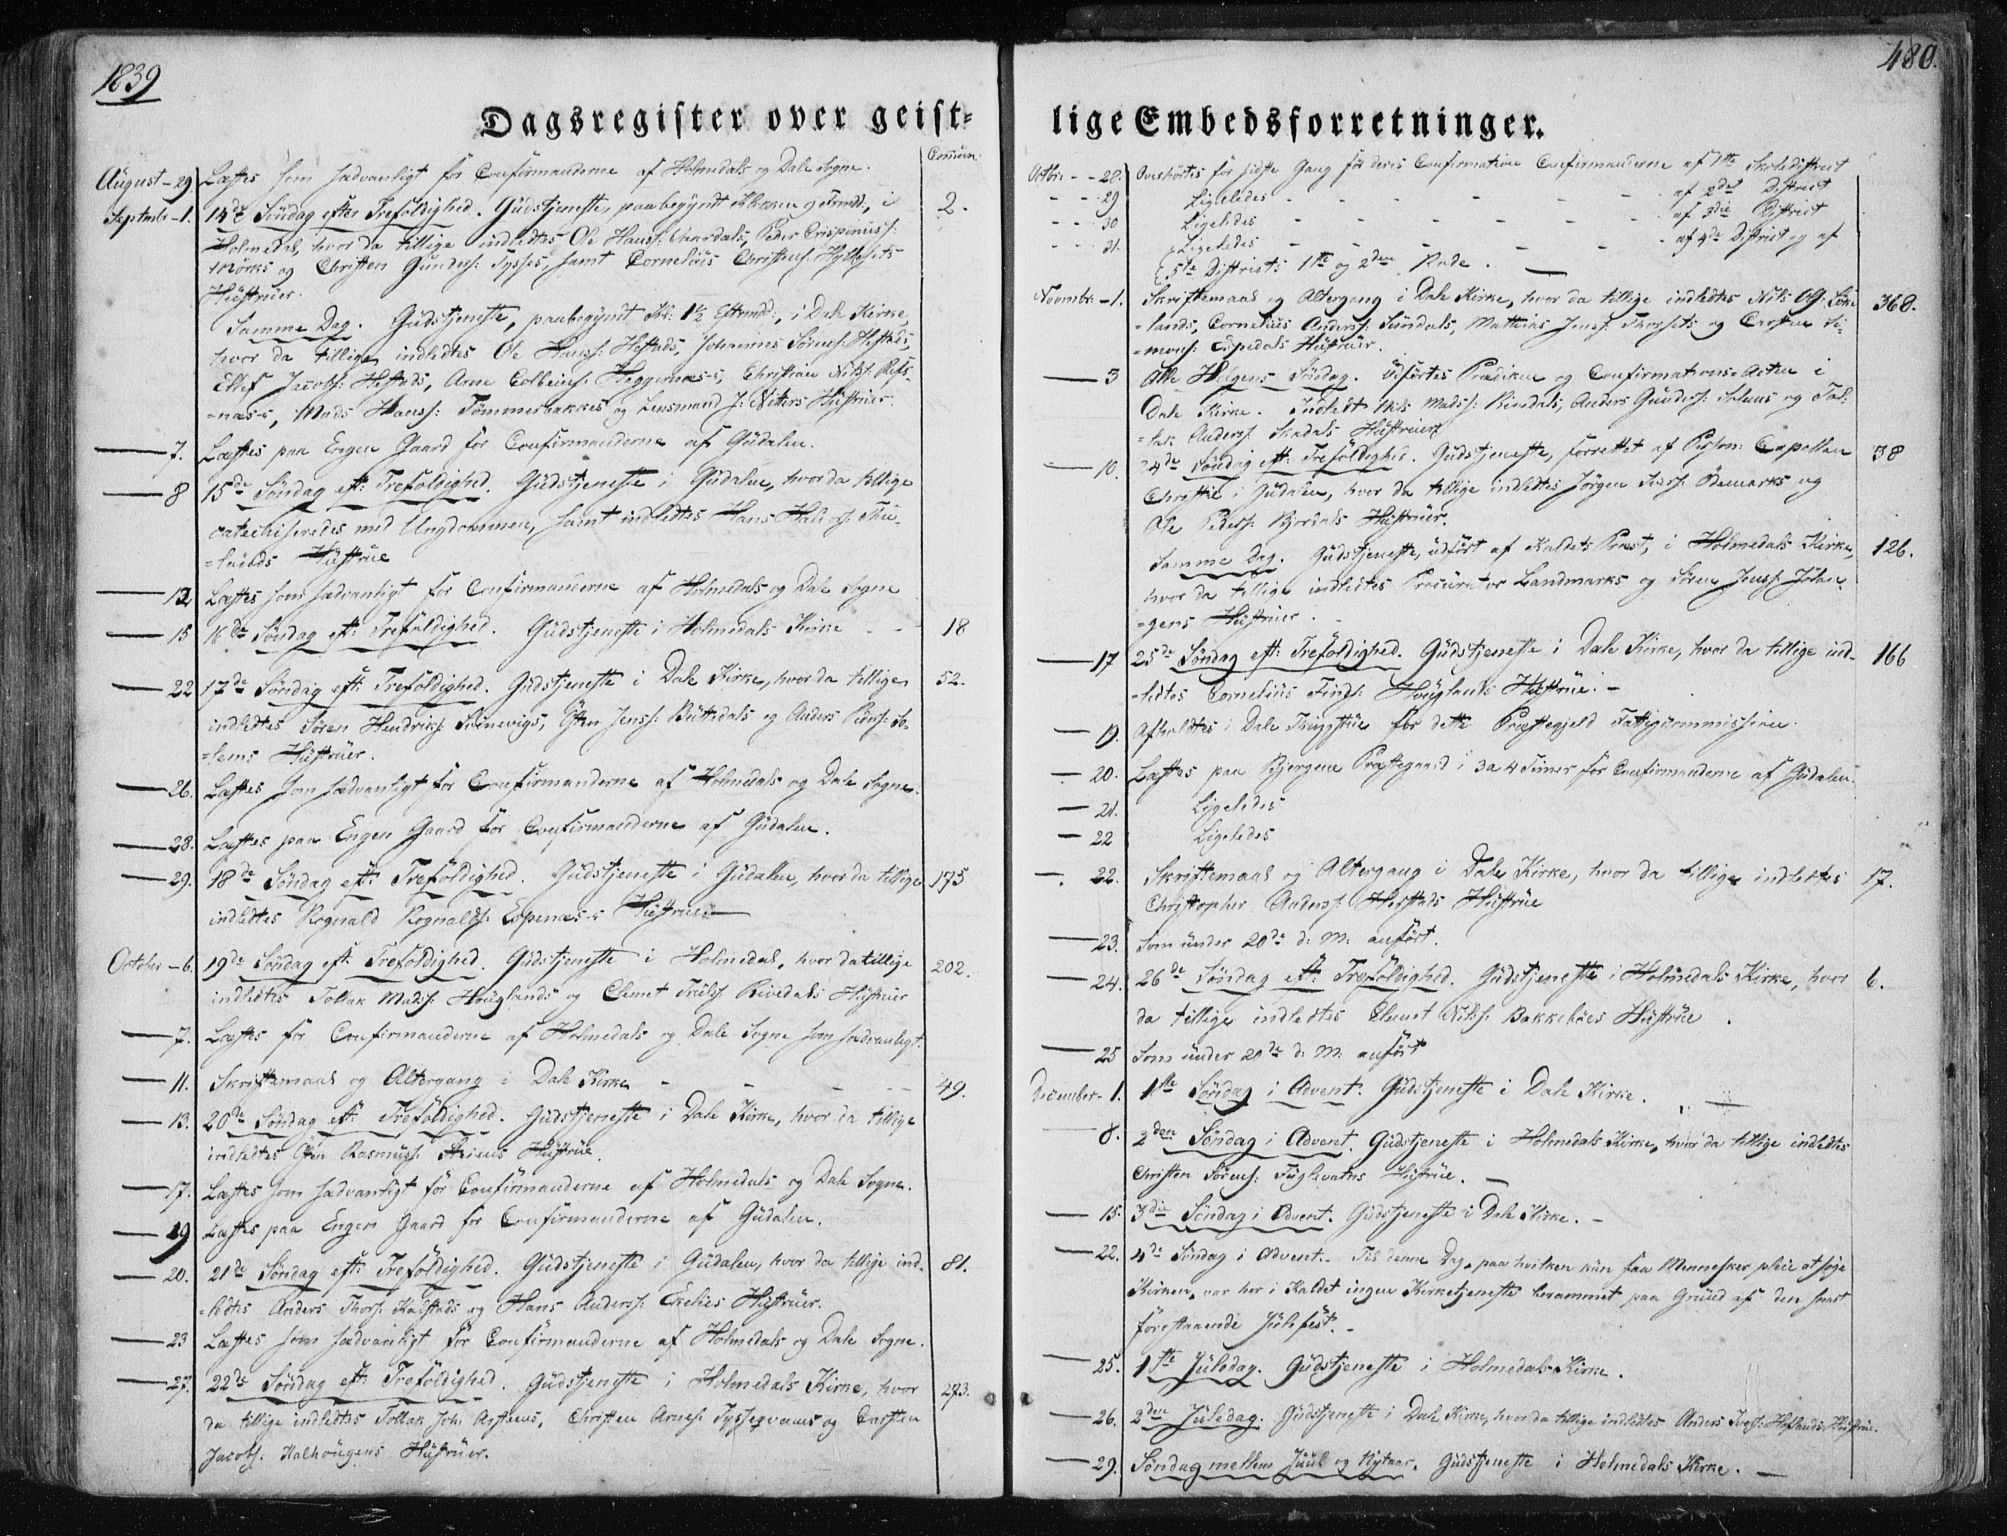 1839
480.
Dagsregister over geist-
lige Embedsforretninger.
Commun:
August - 29 Læstes som sædvanligt for Confirmanderne af Holmedals og Dale Sogne.
Septmbr - 1. 14de Søndag efter Trefoldighed. Gudstjeneste, paabegyndt Klokken 9 Frmdt:, i 2.
Holmedal, hvor da tillige indledtes Ole Hanss: Peder Crispiniuss:
Mørks og Christen Gunders: Tysses, samt Cornelius Christens: Hyllesets
Hüstrüer.
Samme Dag. Gudstjeneste, paabegyndt Kl: 1½ Eftrmdd:, i Dale Kirke,
hvor da tillige indledtes Ole Hanss: Hestads, Johannes Sørens: Hestads,
Ellef Jacobs: Hestads, Arne Colbeins: Heggernæs's, Christian Nilss:
=næs's, Mads Hanss: Tømmerbakkes og Lensmand J: Nitters Hüstrüer.
7. Læstes paa Engen Gaard for Confirmanderne af Güdalen.
8 15de Søndag eft: Trefoldighed. Gudstjeneste i Güdalen, hvor da tillige
catechiseredes med Ungdommen, samt indledtes Hans
Hüstrüe
12 Læstes som sædvanligt for Confirmanderne af Holmedals og Dale Sogne
15 16de Søndag eft: Trefoldighed. Gudstjeneste i Holmedals Kirke - - 18
22 17de Søndag eft: Trefoldighed. Gudstjeneste i Dale Kirke, hvor da tillige 52.
indledtes Søren Hendriks: Steinevigs, Østen Jenss: og Anders Peders: So-
=lems Hüstrüer.
26. Læstes som sædvanligt for Confirmanderne af Holmedals og Dale Sogne.
28. Læstes paa Engen Gaard for Confirmanderne af Güdalen.
29. 18de Søndag eft: Trefoldighed. Gudstjeneste i Güdalen, hvor da tillige 175
indledtes Rognald Rognalds: Espenæs's Hüstrüe
October - 6. 19de Søndag eft: Trefoldighed. Gudstjeneste i Holmedal, hvor da tillige 202.
indledtes Tollak Madss: Houglands og Clemet Truls: Rivedals Hüstrüer
7. Læstes for Confirmanderne af Holmedals og Dale Sogne som sædvanligt.
11. Skriftemaal og Altergang i Dale Kirke - - - - 49.
13. 20de Søndag eft: Trefoldighed. Gudstjeneste i Dale Kirke, hvor da tillige
indledtes Østen Rasmuss: Hüstrüe.
17. Læstes som sædvanligt for Confirmanderne af Holmedals og Dale Sogne.
19 Læstes paa Engen Gaard for Confirmanderne af Güdalen.
20. 21de Søndag eft: Trefoldighed. Gudstjeneste i Güdalen, hvor da tillige ind- 81.
=ledtes Anders Thors: og Hans Anderss: Hüstrüer.
23 Læstes som sædvanligt for Confirmanderne af Holmedals og Dale Sogne.
27. 22de Søndag eft: Trefoldighed. Gudstjeneste i Holmedals Kirke, hvor 273.
da tillige indledtes Tollak Joh: Christen Arnes: Tysseqvams og Carsten
Jacobs. Halhougens Hüstrüer.
Octbr: - - 28. Overhørtes for sidste Gang før deres Confirmation Confirmanderne af 1ste Skoledistrict
29 Ligeledes - - - - - - af 2det District
30 Ligeledes - - - - - - af 3die District
31. Ligeledes - - - - - - af 4de District og af
5te Districts 1ste og 2den Rode.
Novmbr: - 1. Skriftemaal og Altergang i Dale Kirke, hvor da tillige indledtes Nils Løke- 368.
=lands, Cornelius Anderss: Sundals, Matthias Jens: Thorsets og Carsten Si-
=mons: Espedals Hüstrüer.
3 Alle Helgens Søndag. Udførtes Prædiken og Confirmations-Acten i
Dale Kirke. Indledt Nils Madss: Rindals, Anders Gunders: og Tol-
=lak Anderss: Hüstrüer
10. 24de Søndag eft: Trefoldighed. Gudstjeneste, forrettet af Person: Capellan 38
Christie i Güdalen, hvor da tillige indledtes Jørgen Ødemarks og
Ole Peders: Hüstrüer.
Samme Dag. Gudstjeneste, udført af Kaldets Præst, i Holmedals Kirke, 126.
hvor da tillige indledtes Procurator Landmarks og Søren Jens:
=gens Hüstrüer.
17 25de Søndag eft: Trefoldighed. Gudstjeneste i Dale Kirke, hvor da tillige ind- 166
=ledtes Cornelius Finds: Houglands Hüstrüe. -
19. Afholdtes i Dale Thingstue for dette Præstegjeld Fattigcommission.
20. Læstes paa Bjergene Præstegaard i 3 a 4 Timer for Confirmanderne af Güdalen.
21. Ligeledes
22 Ligeledes
22. Skriftemaal og Altergang i Dale Kirke, hvor da tillige indledtes 17.
Christopher Anderss: Hestads Hüstrüe
23. Som under 20de d: M: anført.
24. 26de Søndag eft: Trefoldighed. Gudstjeneste i Holmedals Kirke, hvor 6.
da tillige indledtes Clemet Nils: Bakkebøes Hüstrüe.
25 Som under 20de d: M: anført
December - 1. 1ste Søndag i Advent. Gudstjeneste i Dale Kirke.
8. 2den Søndag i Advent. Gudstjeneste i Holmedals Kirke, hvor da tillige indledtes
Christen Sørens: Fuglevatns Hüstrüe.
15. 3die Søndag i Advent. Gudstjeneste i Dale Kirke. -
22. 4de Søndag i Advent. Til denne Dag, paa hvilken kün faa Mennesker pleie at søge
Kirken, var her i Kaldet ingen Kirketjeneste berammet paa Grund af den snart
forestaaende Julefest. -
25. 1ste Juledag. Gudstjeneste i Holmedals Kirke.
26. 2den Juledag. Gudstjeneste i Dale Kirke, hvor da tillige indledtes Anders Ivers: Hüstrüe.
29. Søndag mellem Juul og Nytaar. Gudstjeneste i Holmedals Kirke.